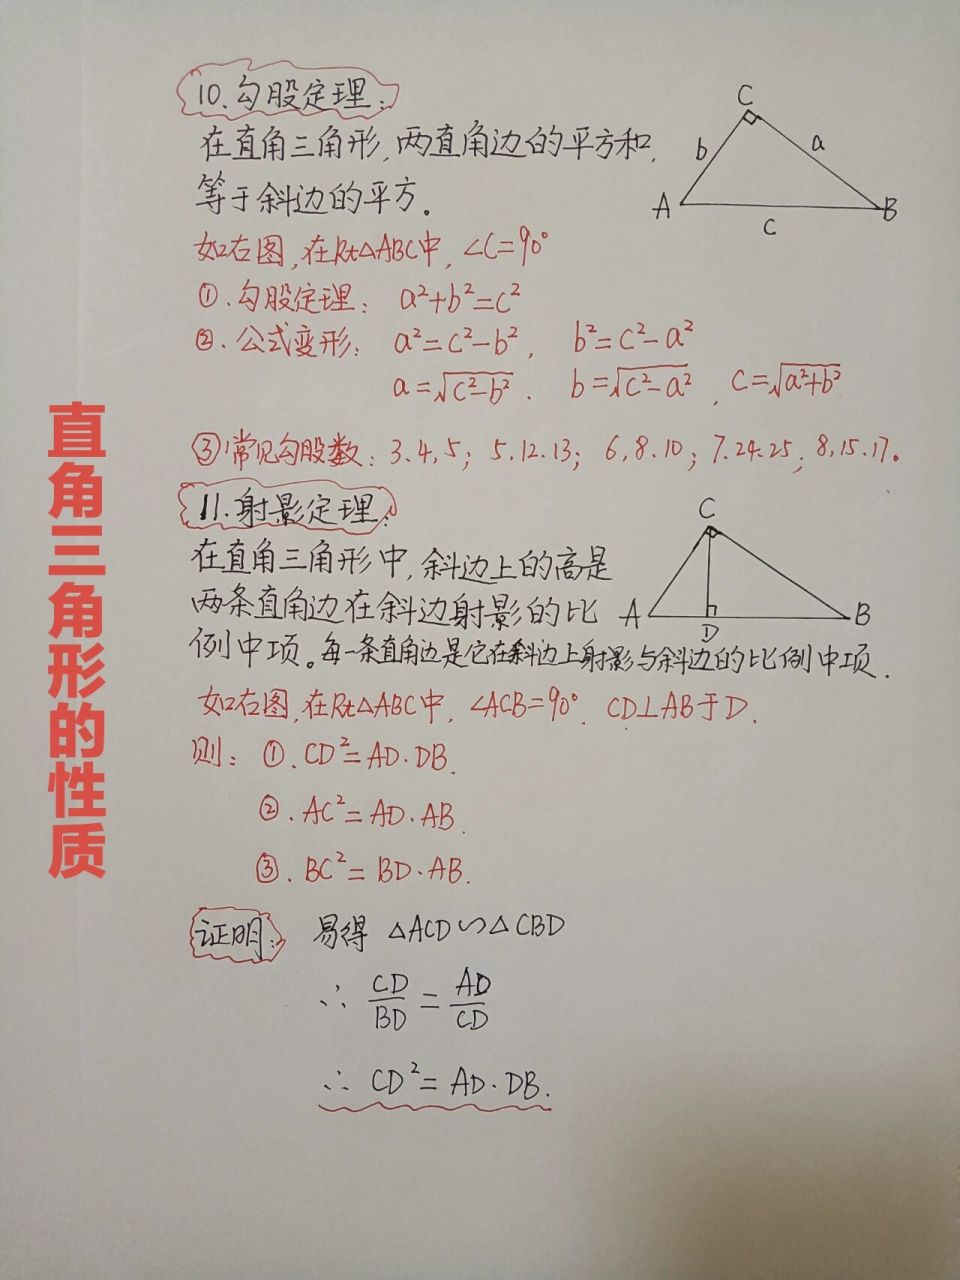 直角三角形的性质
10.勾股定理:
在直角三角形,两直角边的平方和,
等于斜边的平方。
C
b
a
A
B
c
如右图,在Rt△ABC中,∠C=90°
①.勾股定理: a²+b²=c²
②.公式变形: a²=c²-b², b²=c²-a²
a=√(c²-b²). b=√(c²-a²), c=√(a²+b²)
③常见勾股数: 3.4,5; 5.12.13; 6,8.10; 7.24.25; 8,15.17。
11.射影定理:
在直角三角形中,斜边上的高是
两条直角边在斜边射影的比
例中项。每一条直角边是它在斜边上射影与斜边的比例中项.
C
A
D
B
如右图,在Rt△ABC中,∠ACB=90°. CD⊥AB于D.
则: ①.CD²=AD·DB.
②.AC²=AD·AB.
③.BC²=BD·AB.
证明: 易得 △ACD∽△CBD
∴ CD/BD = AD/CD
∴ CD²=AD·DB.